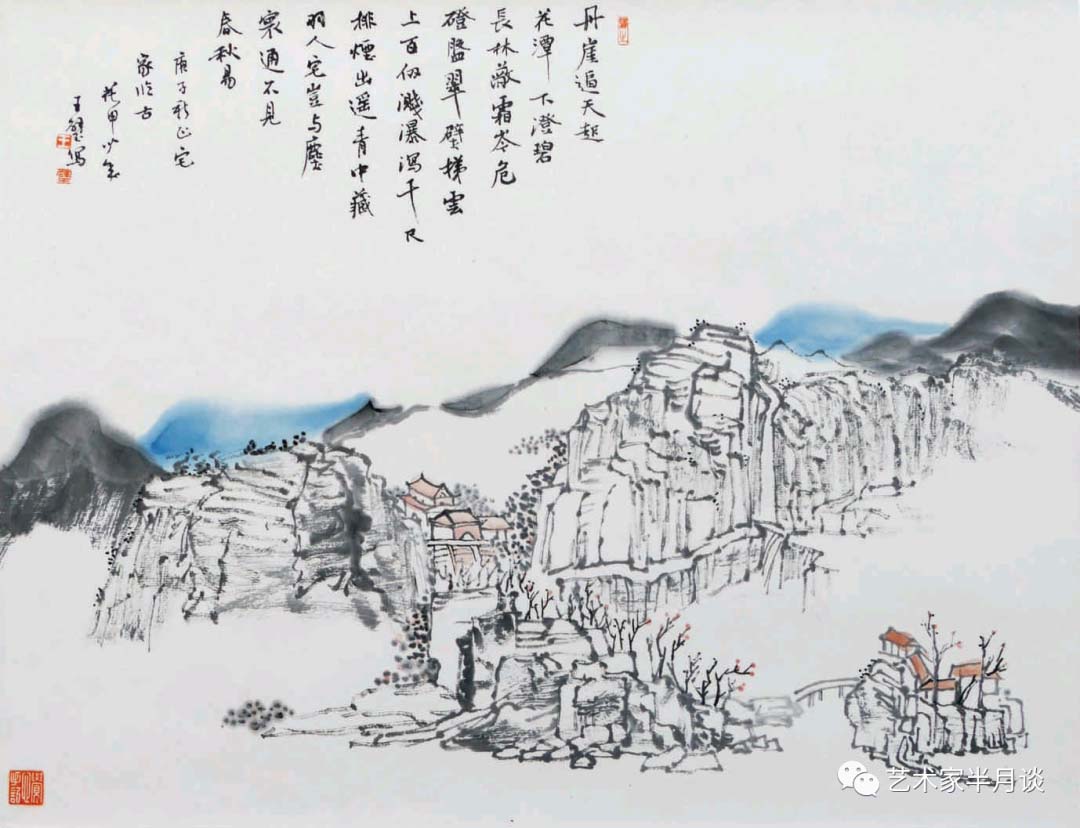 丹崖逼天起
花潭下澄碧
長林蔽霜岑危
磴盤翠壁梯雲
上百仞濺瀑瀉千尺
排煙出遥青中藏
羽人宅豈与塵
寰通不見
春秋易
庚子新正宅
家临古
花甲少年
王
艺术家半月谈